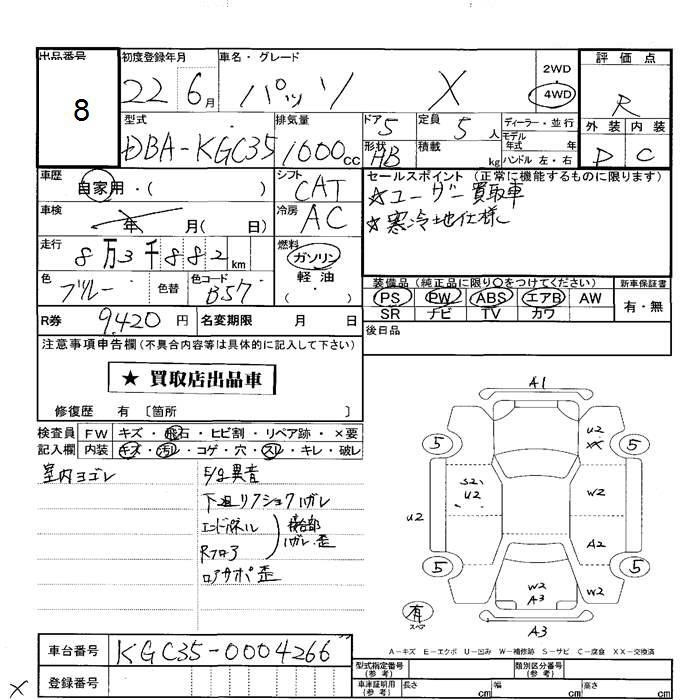 出品番号 初度登録年月 車名・グレード 2WD 評価点
8 22 6月 パッソ X 4WD R
型式 排気量 ドア 定員 ディーラー・並行 外装 内装
DBA-KGC35 1000cc 5 5人 モデル年式 年 D C
形状 HB 積載 kg ハンドル 左・右
車歴 シフト セールスポイント (正常に機能するものに限ります)
自家用・( ) CAT ★ユーザー買取車
車検 年 月( 日) 冷房 AC ★寒冷地仕様
走行 8万3千882km 燃料 ガソリン 軽油・
色 ブルー 色替 色コード B57 装備品(純正品に限り○をつけてください) 新車保証書
PS PW ABS エアB AW 有・無
SR ナビ TV カワ
R券 9,420円 名変期限 月 日 後日品
注意事項申告欄(不具合内容等は具体的に記入して下さい)
★ 買取店出品車
修復歴 有 〔箇所 〕
検査員 FW キズ・飛石・ヒビ割・リペア跡・×要
記入欄 内装 キズ・汚レ・コゲ・穴・スレ・キレ・破レ
室内ヨゴレ
下廻リアショクハガレ
接合部
ハガレ・歪
A1
U2
5 5
S2 U2
W2
U2
A2
5 5
W2 A3
W2
有
スペア
A3
A-キズ E-エクボ U-凹み W-補修跡 S-サビ C-腐食 XX-交換済
車台番号 KGC35-0004266
登録番号
型式指定番号(参考) 類別区分番号(参考)
車庫証明用(参考) 長さ cm 幅 cm 高さ cm